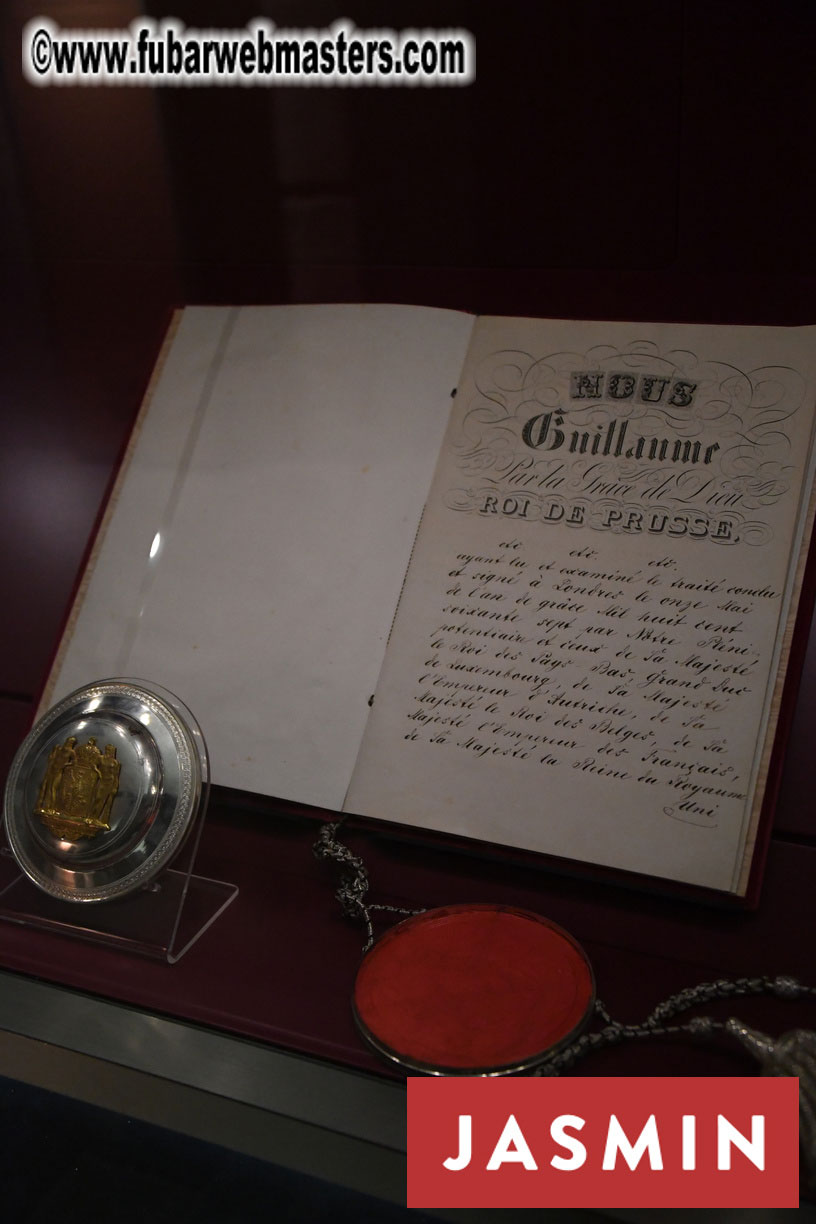 ©www.fubarwebmasters.com
NOUS
Guillaume
Par la Grâce de Dieu
ROI DE PRUSSE,
etc etc etc.
ayant lu et examiné le traité conclu
et signé à Londres le onze Mai
de l'an de grâce Mil huit cent
soixante sept par Nôtre Pléni-
potentiaire et ceux de Sa Majesté
le Roi des Pays-Bas, Grand Duc
de Luxembourg, de Sa Majesté
l'Empereur d'Autriche, de Sa
Majesté le Roi des Belges, de Sa
Majesté l'Empereur des Français,
de Sa Majesté la Reine du Royaume
Uni
JASMIN